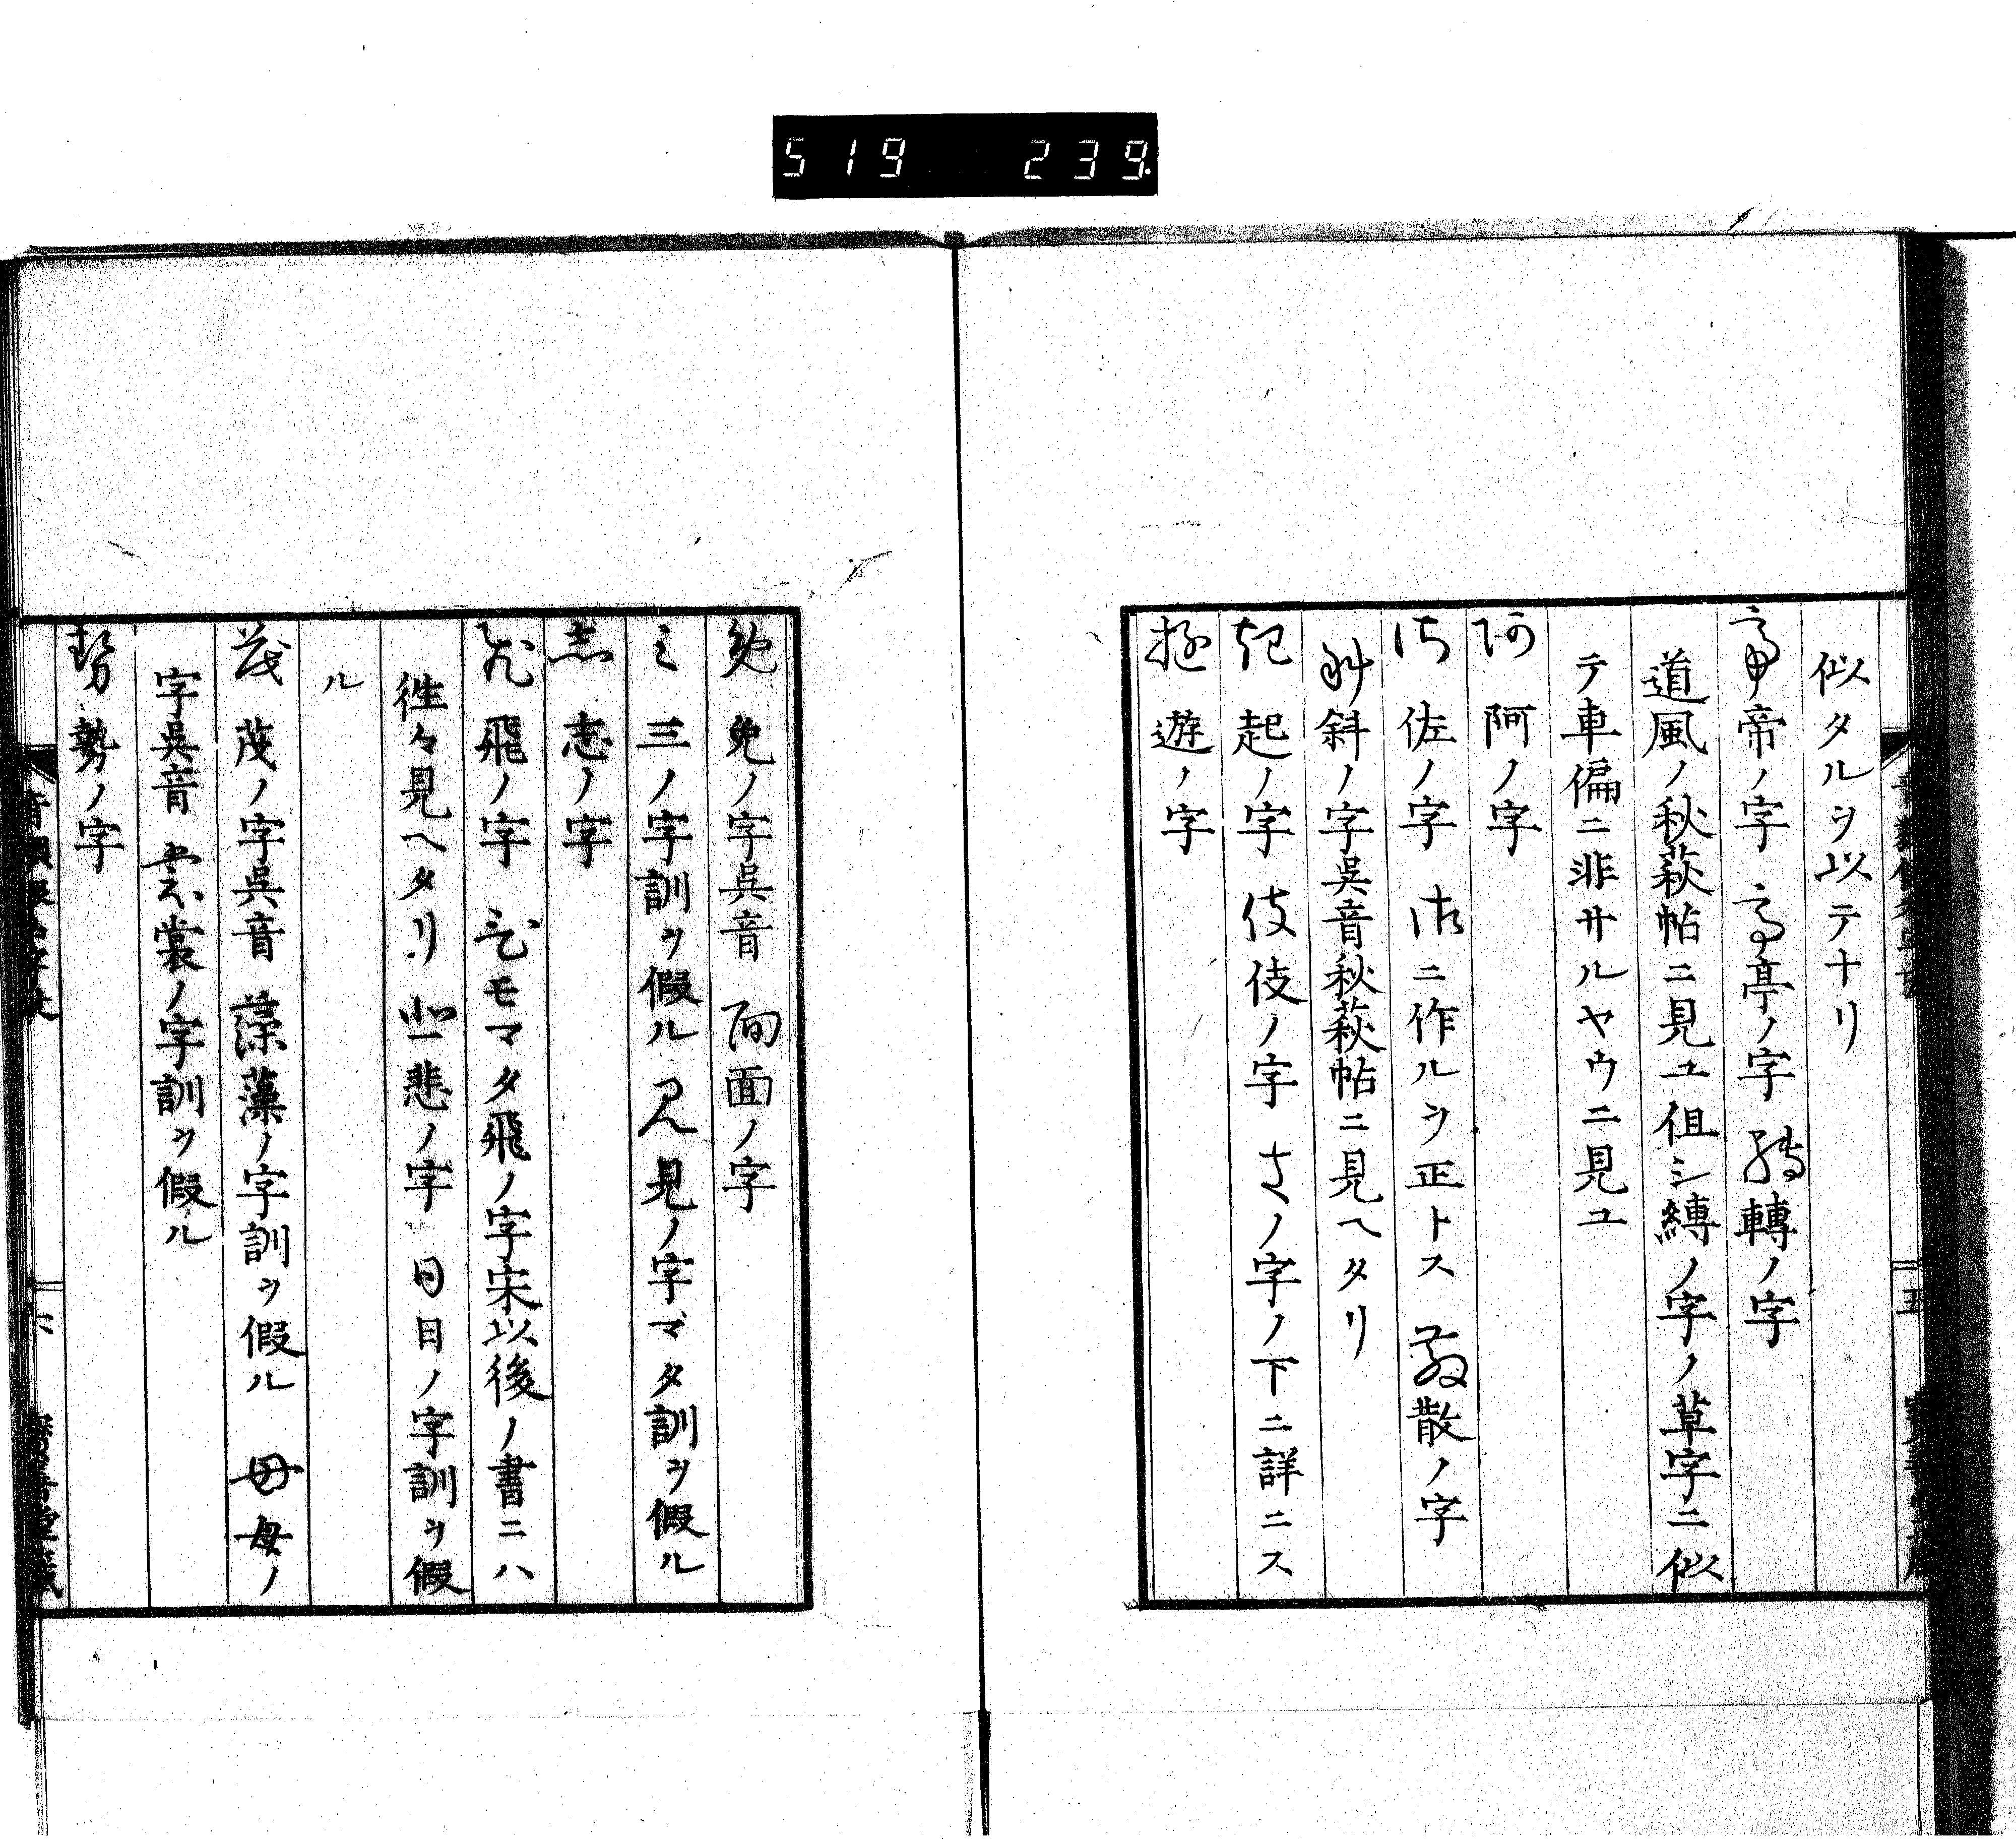 519 239
似タルヲ以テナリ
帝帝ノ字 亭亭ノ字 轉轉ノ字
道風ノ秋萩帖ニ見ユ伹シ縳ノ字ノ草字ニ似
テ車偏ニ非サルヤウニ見ユ
阿阿ノ字
佐佐ノ字 佐ニ作ルヲ正トス 散散ノ字
斜斜ノ字呉音秋萩帖ニ見ヘタリ
起起ノ字 伎伎ノ字 さノ字ノ下ニ詳ニス
遊遊ノ字
五
免免ノ字呉音 面面ノ字
三三ノ字訓ヲ假ル 見見ノ字マタ訓ヲ假ル
志志ノ字
飛飛ノ字 飛モマタ飛ノ字宋以後ノ書ニハ
徃々見ヘタリ 悲悲ノ字 日日ノ字訓ヲ假
ル
茂茂ノ字呉音 藻藻ノ字訓ヲ假ル 母母ノ
字呉音 裳裳ノ字訓ヲ假ル
勢勢ノ字
六